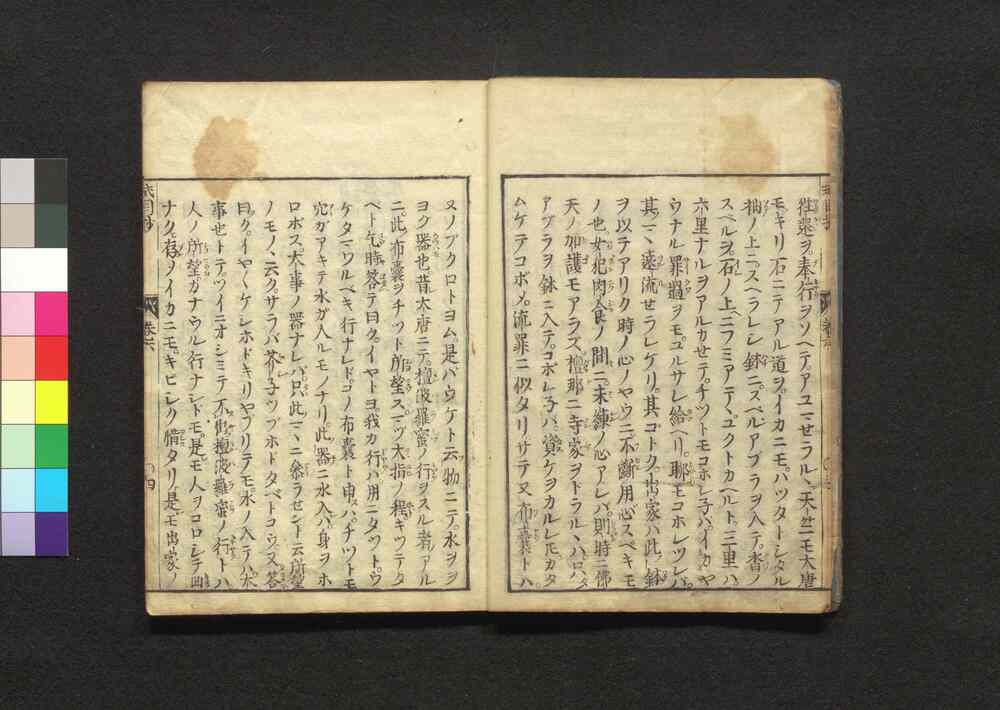 往還ヲ奉行ヲソヘテアユマセラルヽ天竺ニモ大唐
モキリ石ニテアル道ヲイカニモハツタトシタル
袖ノ上ニスヘラレシ鉢ニスベルアブラヲ入テ沓ノ
スベルヲ石ノ上ニフミアテヽユクトカヘルト三里ハ
六里ナルヲアルカセテチツトモコホレ子バイカヤ
ウナル罪過ヲモユルサレ給ヘリ聊モコホレツレバ
其マヽ遠流せラレケリ其コトク出家ハ此鉢
ヲ以テアリク時ノ心ノヤウニ不斷用心スベキモ
ノ也女犯肉食ノ間ニ未練ノ心アレバ則時ニ佛
天ノ加護モアラズ檀那ニ寺家ヲトラルヽハロハ
アブラヲ鉢ニ入テコボレ子バ貸ケヲカルレ𪜈カタ
ムケテコボメ流罪ニ似タリサテ又布囊トハ
ヌノブクロトヨム是ハウケト云物ニテ水ヲヲ
ヨク器也昔大唐ニテ檀波羅蜜ノ行ヲスル者アル
ニ此布囊ヲチツト所望スマツ大指ノ程キツテタ
ベト乞時答テ曰クイヤトヨ我カ行ハ用ニタツトウ
ケタマワルベキ行ナレドコノ布囊ト申ハチツトモ
穴ガアキテ水ガ入ルモノナリ此器ニ水入バ身ヲホ
ロボス大事ノ器ナレバ只此マヽニ参ラセント云所望
ノモノヽ云クサラバ芥子ツブホドタベトコウ又答
曰クイヤ〱ケシホドキリヤブリテモ水ノ入テハ大
事也トテツイニオシミテ不出檀波羅蜜ノ行トハ
人ノ所望ガナウル行ナシドモ是モ人ヲコロシテ曲
ナク存ノイカニモキビシク惜タリ是モ出家ノ
巻六